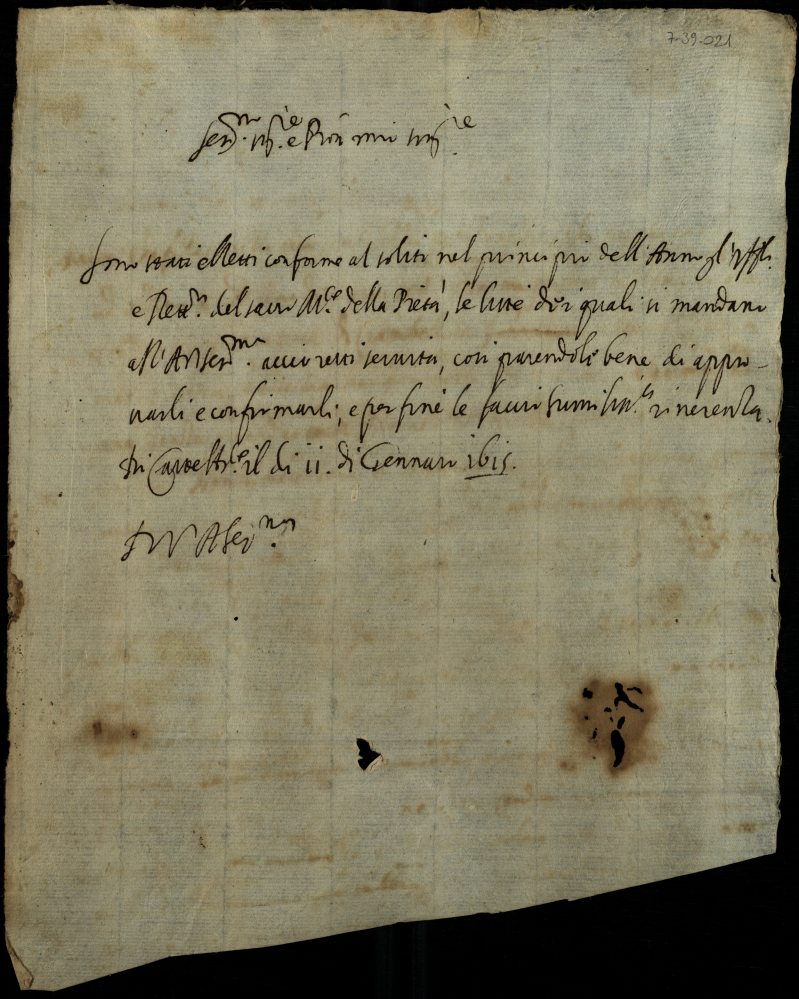 7-39-021
Ser.mo sig.re e Pron mio sig.re
Sono stati eletti conforme al solito nel principio dell'Anno gl'Uffli.
e Rett.ri del sacro M.te della Pietà, le liste dei quali si mandano
all'A V Ser.ma accio resti servita, cosi parendole bene di appro-
varli e confirmarli, e per fine le faccio humiliss.a riverenza.
Di il di 11. di Gennaro 1615.
Di V A Ser.ma